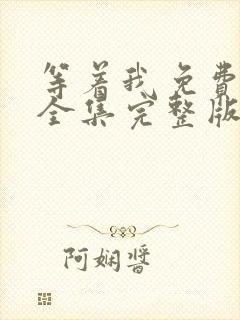 等着我免费
全集完整版
阿娴酱